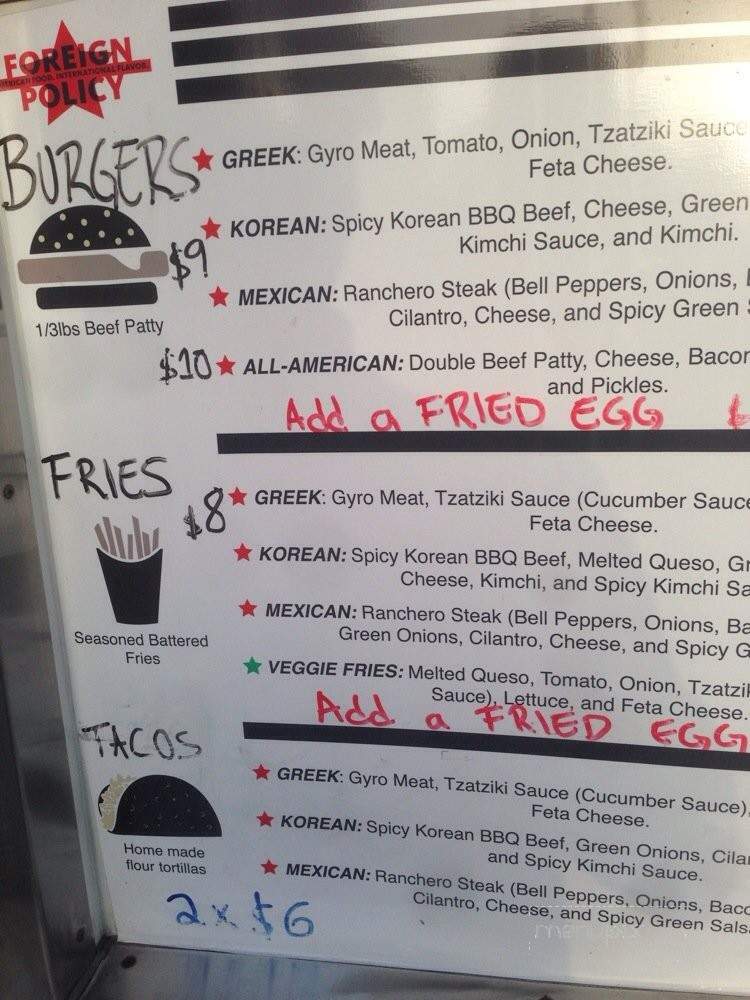 FOREIGN
AMERICAN FOOD. INTERNATIONAL FLAVOR.
POLICY
BURGERS
GREEK: Gyro Meat, Tomato, Onion, Tzatziki Sauce
Feta Cheese.
KOREAN: Spicy Korean BBQ Beef, Cheese, Green
Kimchi Sauce, and Kimchi.
$9
MEXICAN: Ranchero Steak (Bell Peppers, Onions,
Cilantro, Cheese, and Spicy Green
1/3lbs Beef Patty
$10 ALL-AMERICAN: Double Beef Patty, Cheese, Bacon
and Pickles.
Add a FRIED EGG
FRIES
$8
GREEK: Gyro Meat, Tzatziki Sauce (Cucumber Sauce
Feta Cheese.
KOREAN: Spicy Korean BBQ Beef, Melted Queso, Gr
Cheese, Kimchi, and Spicy Kimchi Sa
MEXICAN: Ranchero Steak (Bell Peppers, Onions, Ba
Green Onions, Cilantro, Cheese, and Spicy G
Seasoned Battered
Fries
VEGGIE FRIES: Melted Queso, Tomato, Onion, Tzatzi
Sauce), Lettuce, and Feta Cheese.
Add a FRIED EGG
TACOS
GREEK: Gyro Meat, Tzatziki Sauce (Cucumber Sauce),
Feta Cheese.
KOREAN: Spicy Korean BBQ Beef, Green Onions, Cila
and Spicy Kimchi Sauce.
Home made
flour tortillas
MEXICAN: Ranchero Steak (Bell Peppers, Onions, Baco
Cilantro, Cheese, and Spicy Green Salsa
2 x $6